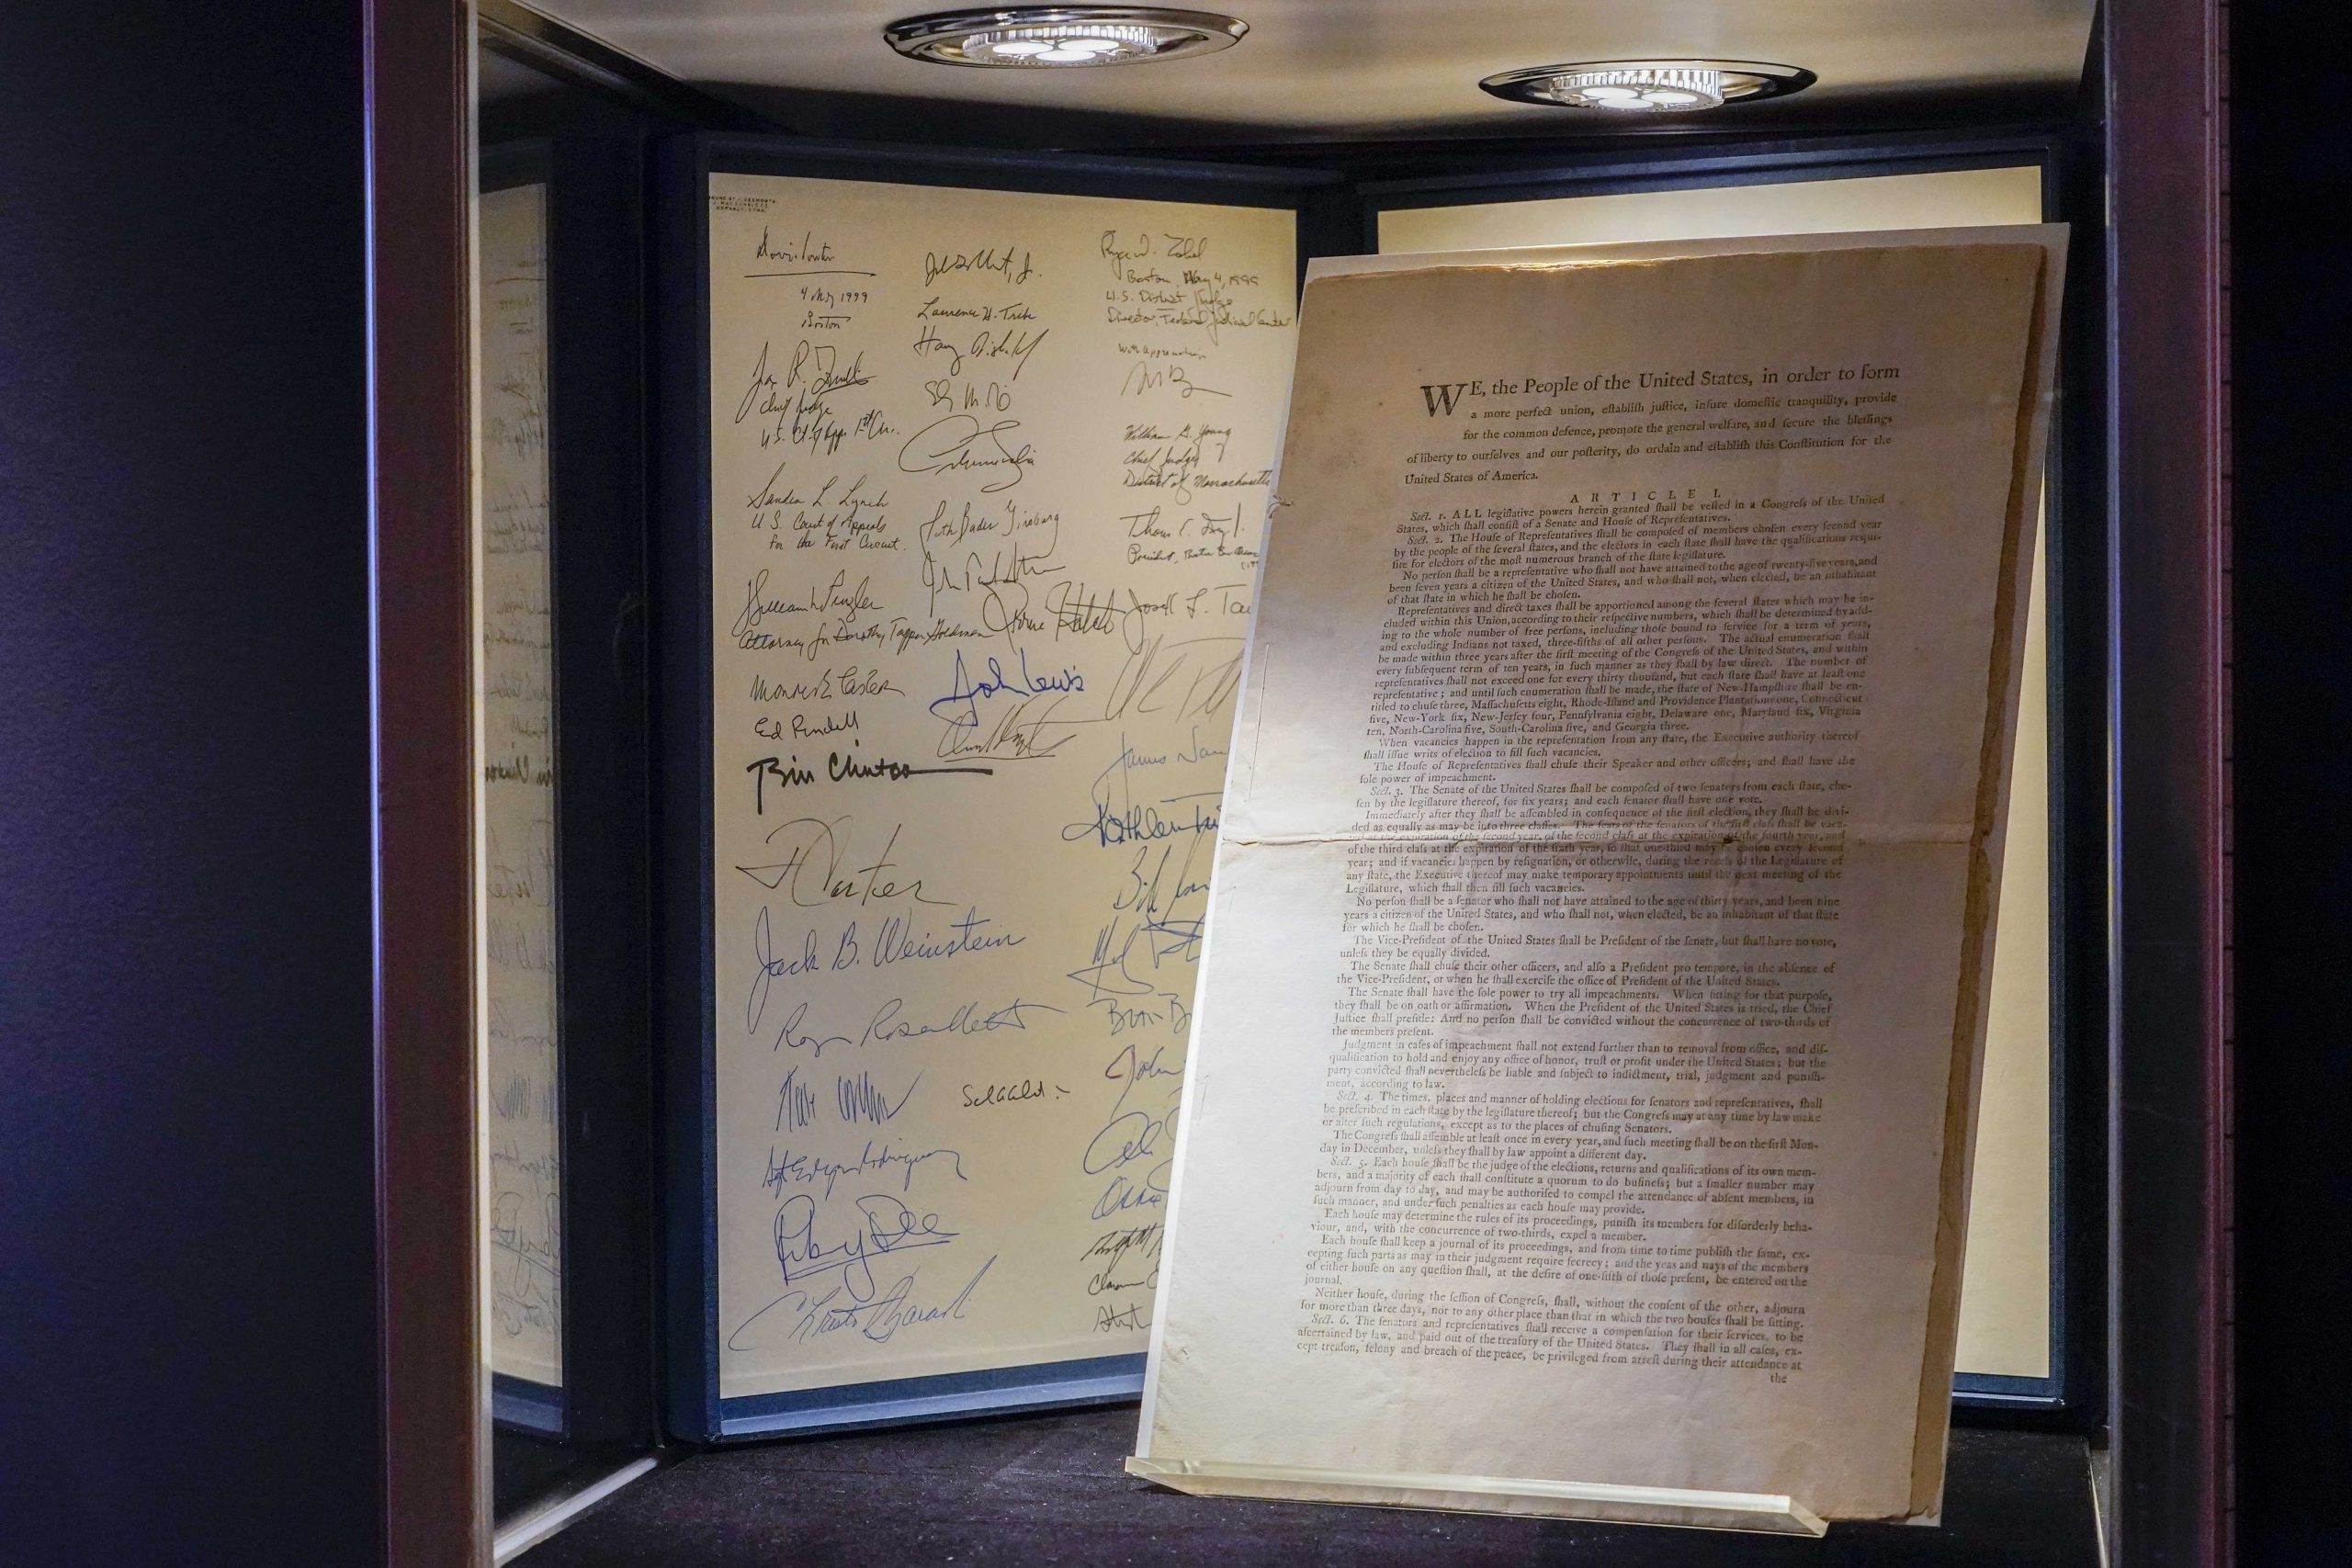 4 May 1999
Boston
Chief Judge
Sandra L. Lynch
U.S. Court of Appeals
For the First Circuit.
Attorney for Dorothy Tapper Goldman
Ed Rendell
Bill Clinton
J Carter
Jack B. Weinstein
Laurence H. Tribe
Ruth Bader Ginsburg
John Lewis
Boston, May 4, 1999
U.S. District Judge
Director, Federal Judicial Center
with appreciation
William G. Young
Chief Judge
District of Massachusetts
WE, the People of the United States, in order to form
a more perfect union, eſtabliſh juſtice, inſure domeſtic tranquility, provide
for the common defence, promote the general welfare, and ſecure the bleſſings
of liberty to ourſelves and our poſterity, do ordain and eſtabliſh this Conſtitution for the
United States of America.
ARTICLE I.
Sect. 1. ALL legiſlative powers herein granted ſhall be veſted in a Congreſs of the United
States, which ſhall conſiſt of a Senate and Houſe of Repreſentatives.
Sect. 2. The Houſe of Repreſentatives ſhall be compoſed of members choſen every ſecond year
by the people of the ſeveral ſtates, and the electors in each ſtate ſhall have the qualifications requi-
ſite for electors of the moſt numerous branch of the ſtate legiſlature.
No perſon ſhall be a repreſentative who ſhall not have attained to the age of twenty-five years, and
been ſeven years a citizen of the United States, and who ſhall not, when elected, be an inhabitant
of that ſtate in which he ſhall be choſen.
Repreſentatives and direct taxes ſhall be apportioned among the ſeveral ſtates which may be in-
cluded within this Union, according to their reſpective numbers, which ſhall be determined by add-
ing to the whole number of free perſons, including thoſe bound to ſervice for a term of years,
and excluding Indians not taxed, three-fifths of all other perſons. The actual enumeration ſhall
be made within three years after the firſt meeting of the Congreſs of the United States, and within
every ſubſequent term of ten years, in ſuch manner as they ſhall by law direct. The number of
repreſentatives ſhall not exceed one for every thirty thouſand, but each ſtate ſhall have at leaſt one
repreſentative; and until ſuch enumeration ſhall be made, the ſtate of New-Hampſhire ſhall be en-
titled to chuſe three, Maſſachuſetts eight, Rhode-Iſland and Providence Plantations one, Connecticut
five, New-York ſix, New-Jerſey four, Pennſylvania eight, Delaware one, Maryland ſix, Virginia
ten, North-Carolina five, South-Carolina five, and Georgia three.
When vacancies happen in the repreſentation from any ſtate, the Executive authority thereof
ſhall iſſue writs of election to fill ſuch vacancies.
The Houſe of Repreſentatives ſhall chuſe their Speaker and other officers; and ſhall have the
ſole power of impeachment.
Sect. 3. The Senate of the United States ſhall be compoſed of two ſenators from each ſtate, cho-
ſen by the legiſlature thereof, for ſix years; and each ſenator ſhall have one vote.
Immediately after they ſhall be aſſembled in conſequence of the firſt election, they ſhall be divi-
ded as equally as may be into three claſſes. The ſeats of the ſenators of the firſt claſs ſhall be vaca-
ted at the expiration of the ſecond year, of the ſecond claſs at the expiration of the fourth year, and
of the third claſs at the expiration of the ſixth year, ſo that one-third may be choſen every ſecond
year; and if vacancies happen by reſignation, or otherwiſe, during the receſs of the Legiſlature of
any ſtate, the Executive thereof may make temporary appointments until the next meeting of the
Legiſlature, which ſhall then fill ſuch vacancies.
No perſon ſhall be a ſenator who ſhall not have attained to the age of thirty years, and been nine
years a citizen of the United States, and who ſhall not, when elected, be an inhabitant of that ſtate
for which he ſhall be choſen.
The Vice-Preſident of the United States ſhall be Preſident of the ſenate, but ſhall have no vote,
unleſs they be equally divided.
The Senate ſhall chuſe their other officers, and alſo a Preſident pro tempore, in the abſence of
the Vice-Preſident, or when he ſhall exerciſe the office of Preſident of the United States.
The Senate ſhall have the ſole power to try all impeachments. When ſitting for that purpoſe,
they ſhall be on oath or affirmation. When the Preſident of the United States is tried, the Chief
Juſtice ſhall preſide: And no perſon ſhall be convicted without the concurrence of two-thirds of
the members preſent.
Judgment in caſes of impeachment ſhall not extend further than to removal from office, and diſ-
qualification to hold and enjoy any office of honor, truſt or profit under the United States; but the
party convicted ſhall nevertheleſs be liable and ſubject to indictment, trial, judgment and puniſh-
ment, according to law.
Sect. 4. The times, places and manner of holding elections for ſenators and repreſentatives, ſhall
be preſcribed in each ſtate by the legiſlature thereof; but the Congreſs may at any time by law make
or alter ſuch regulations, except as to the places of chuſing Senators.
The Congreſs ſhall aſſemble at leaſt once in every year, and ſuch meeting ſhall be on the firſt Mon-
day in December, unleſs they ſhall by law appoint a different day.
Sect. 5. Each houſe ſhall be the judge of the elections, returns and qualifications of its own mem-
bers, and a majority of each ſhall conſtitute a quorum to do buſineſs; but a ſmaller number may
adjourn from day to day, and may be authoriſed to compel the attendance of abſent members, in
ſuch manner, and under ſuch penalties as each houſe may provide.
Each houſe may determine the rules of its proceedings, puniſh its members for diſorderly beha-
viour, and, with the concurrence of two-thirds, expel a member.
Each houſe ſhall keep a journal of its proceedings, and from time to time publiſh the ſame, ex-
cepting ſuch parts as may in their judgment require ſecrecy; and the yeas and nays of the members
of either houſe on any queſtion ſhall, at the deſire of one-fifth of thoſe preſent, be entered on the
journal.
Neither houſe, during the ſeſſion of Congreſs, ſhall, without the conſent of the other, adjourn
for more than three days, nor to any other place than that in which the two houſes ſhall be ſitting.
Sect. 6. The ſenators and repreſentatives ſhall receive a compenſation for their ſervices, to be
aſcertained by law, and paid out of the treaſury of the United States. They ſhall in all caſes, ex-
cept treaſon, felony and breach of the peace, be privileged from arreſt during their attendance at
the